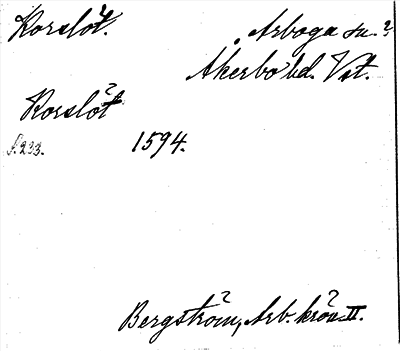 Korslöt. Arboga sn.?
Åkerbo hd. Vst.
Korslöt
s. 233. 1594.
Bergström, Arb. krön. II.